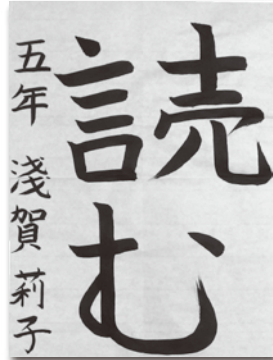 読む
五年 淺賀莉子